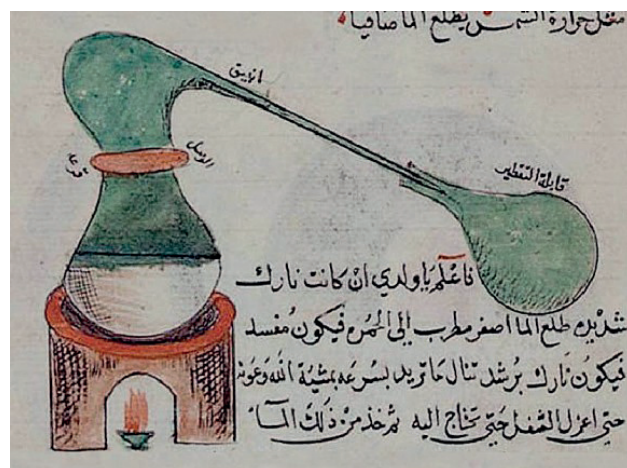 مثل حرارة الشمس يطلع الما صافيا
انبيق
الوصل
قابلة التقطير
فاعلم يا ولدي ان كانت نارك
شديده طلع الما اصفر مطرب الى الحمره فيكون مفسد
فيكون نارك برشد تنال ما تريد بسرعه بمشية الله وعونه
حتى اعزل الثفل حتى تحتاج اليه ثم خذ من ذلك الماء